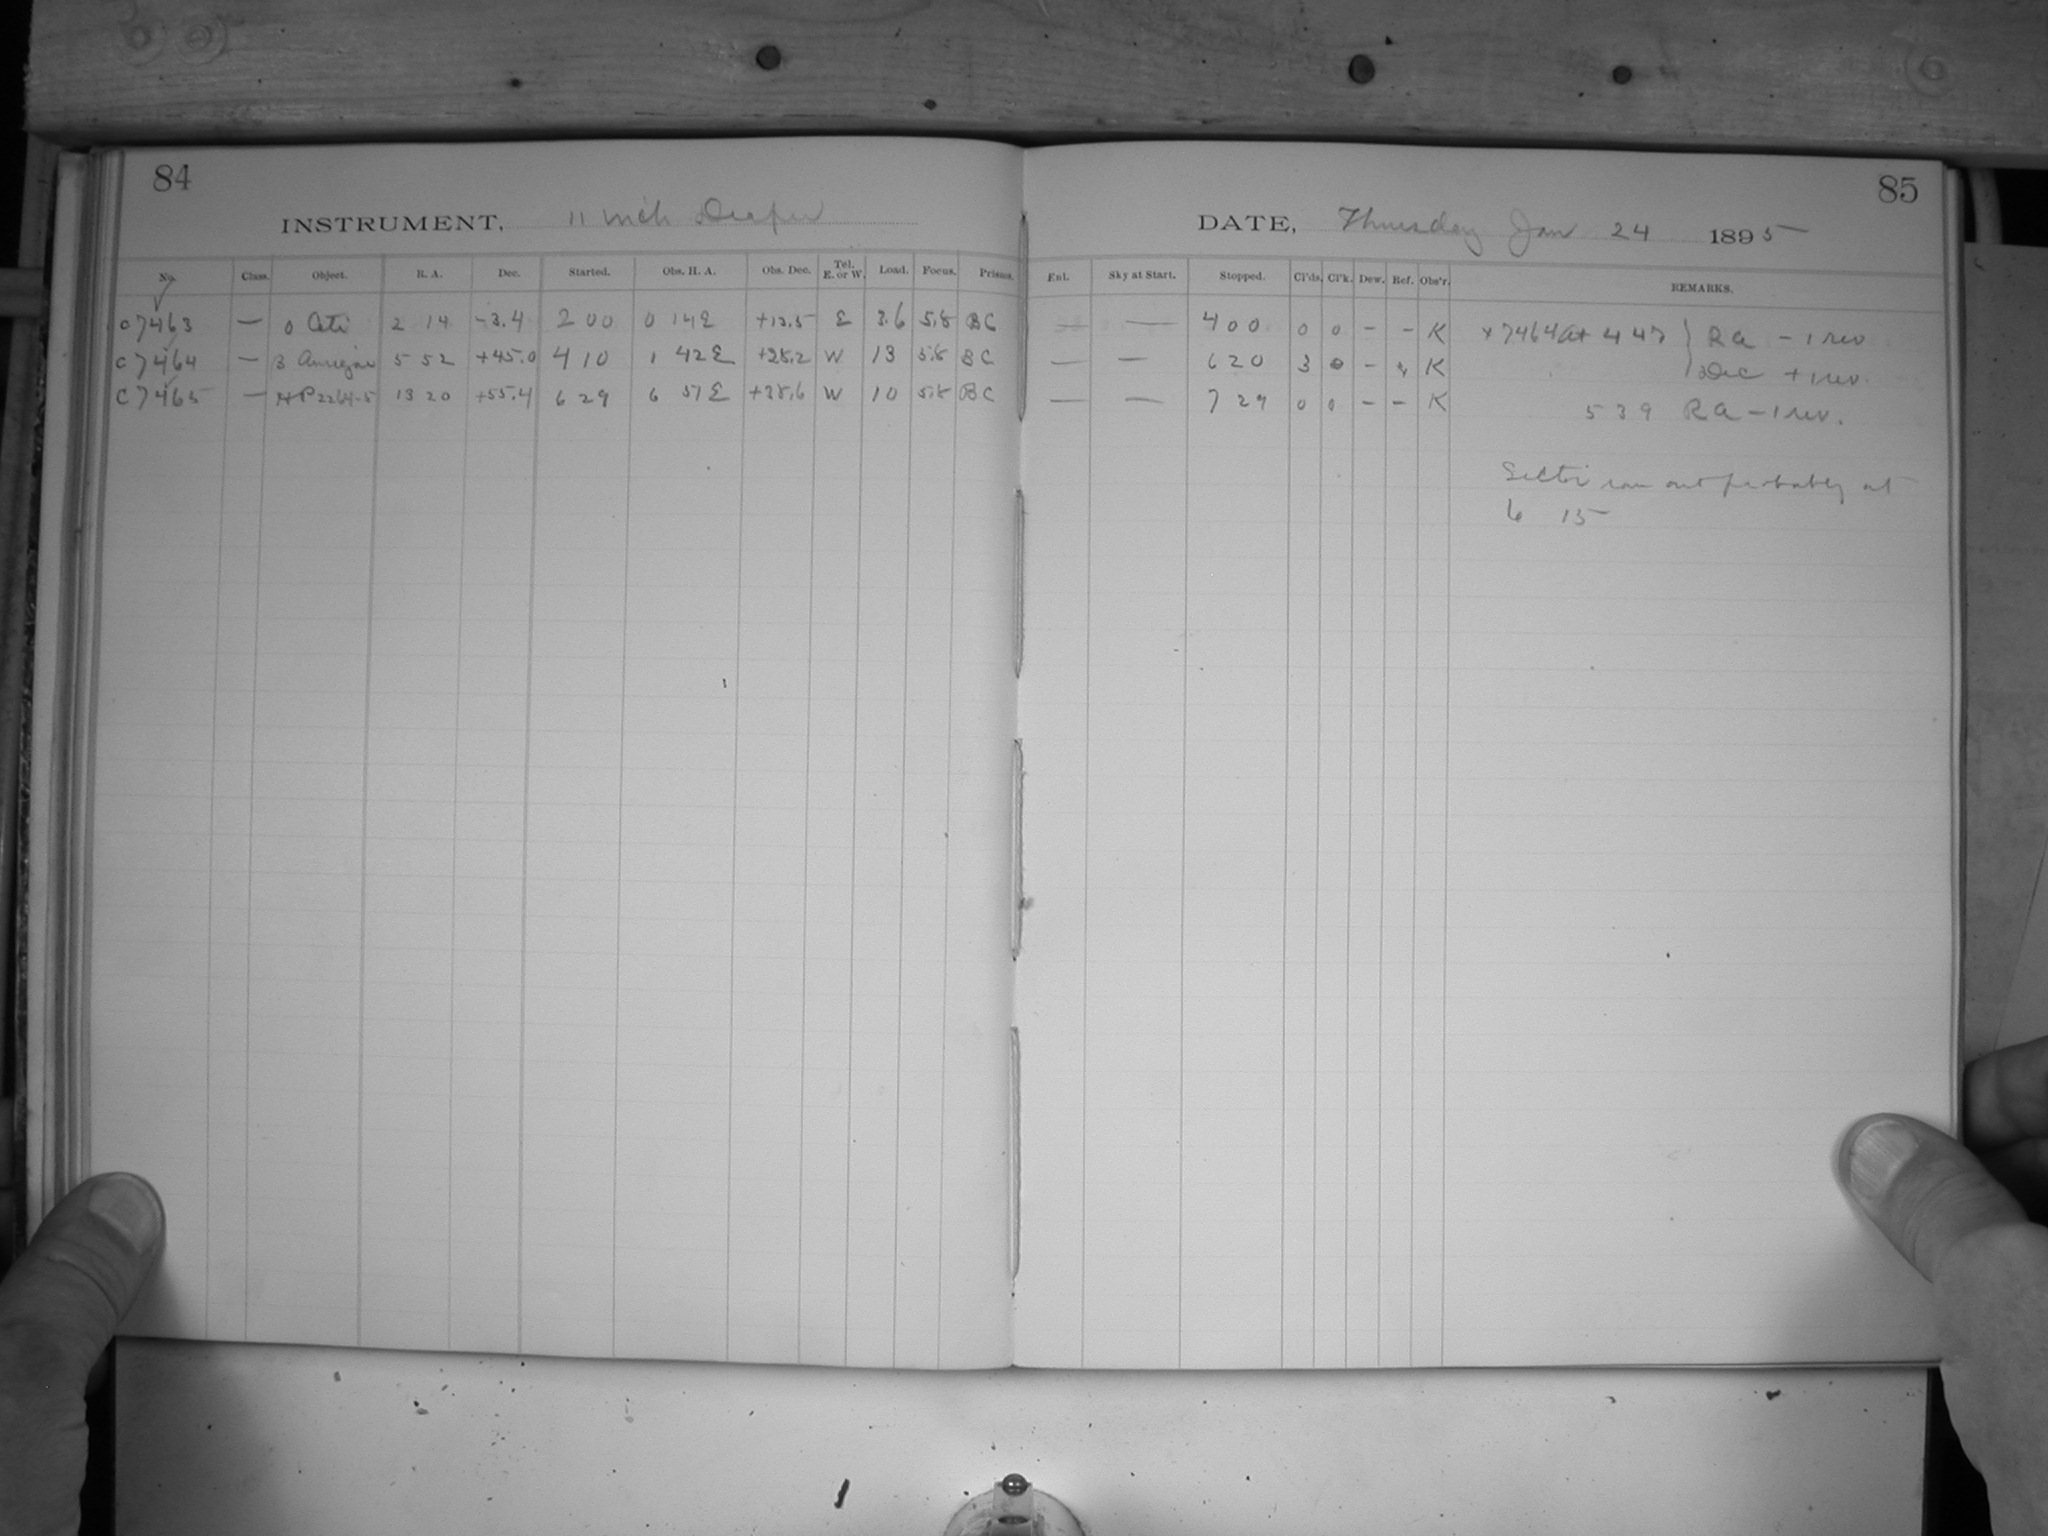 84
INSTRUMENT, 11 inch Draper
No. Class. Object. R. A. Dec. Started. Obs. H. A. Obs. Dec. Tel. E. or W. Load. Focus. Prisms.
C 7463 — o Ceti 2 14 -3.4 2 00 0 14 E +13.5 E 3.6 5.8 BC
C 7464 — β Aurigae 5 52 +45.0 4 10 1 42 E +28.2 W 13 5.8 BC
C 7465 — 13 20 +55.4 6 29 6 51 E +38.6 W 10 5.8 BC
85
DATE, Thursday Jan 24 1895
Ent. Sky at Start. Stopped. Cl'ds. Cl'k. Dew. Ref. Obs'r. REMARKS.
— — 4 00 0 0 - - K 7464 at 4 47 } RA - 1 rev
— — 6 20 3 0 - K Dec + 1 rev.
— — 7 29 0 0 - - K 5 39 RA - 1 rev.
Sector ran out probably at
6 15